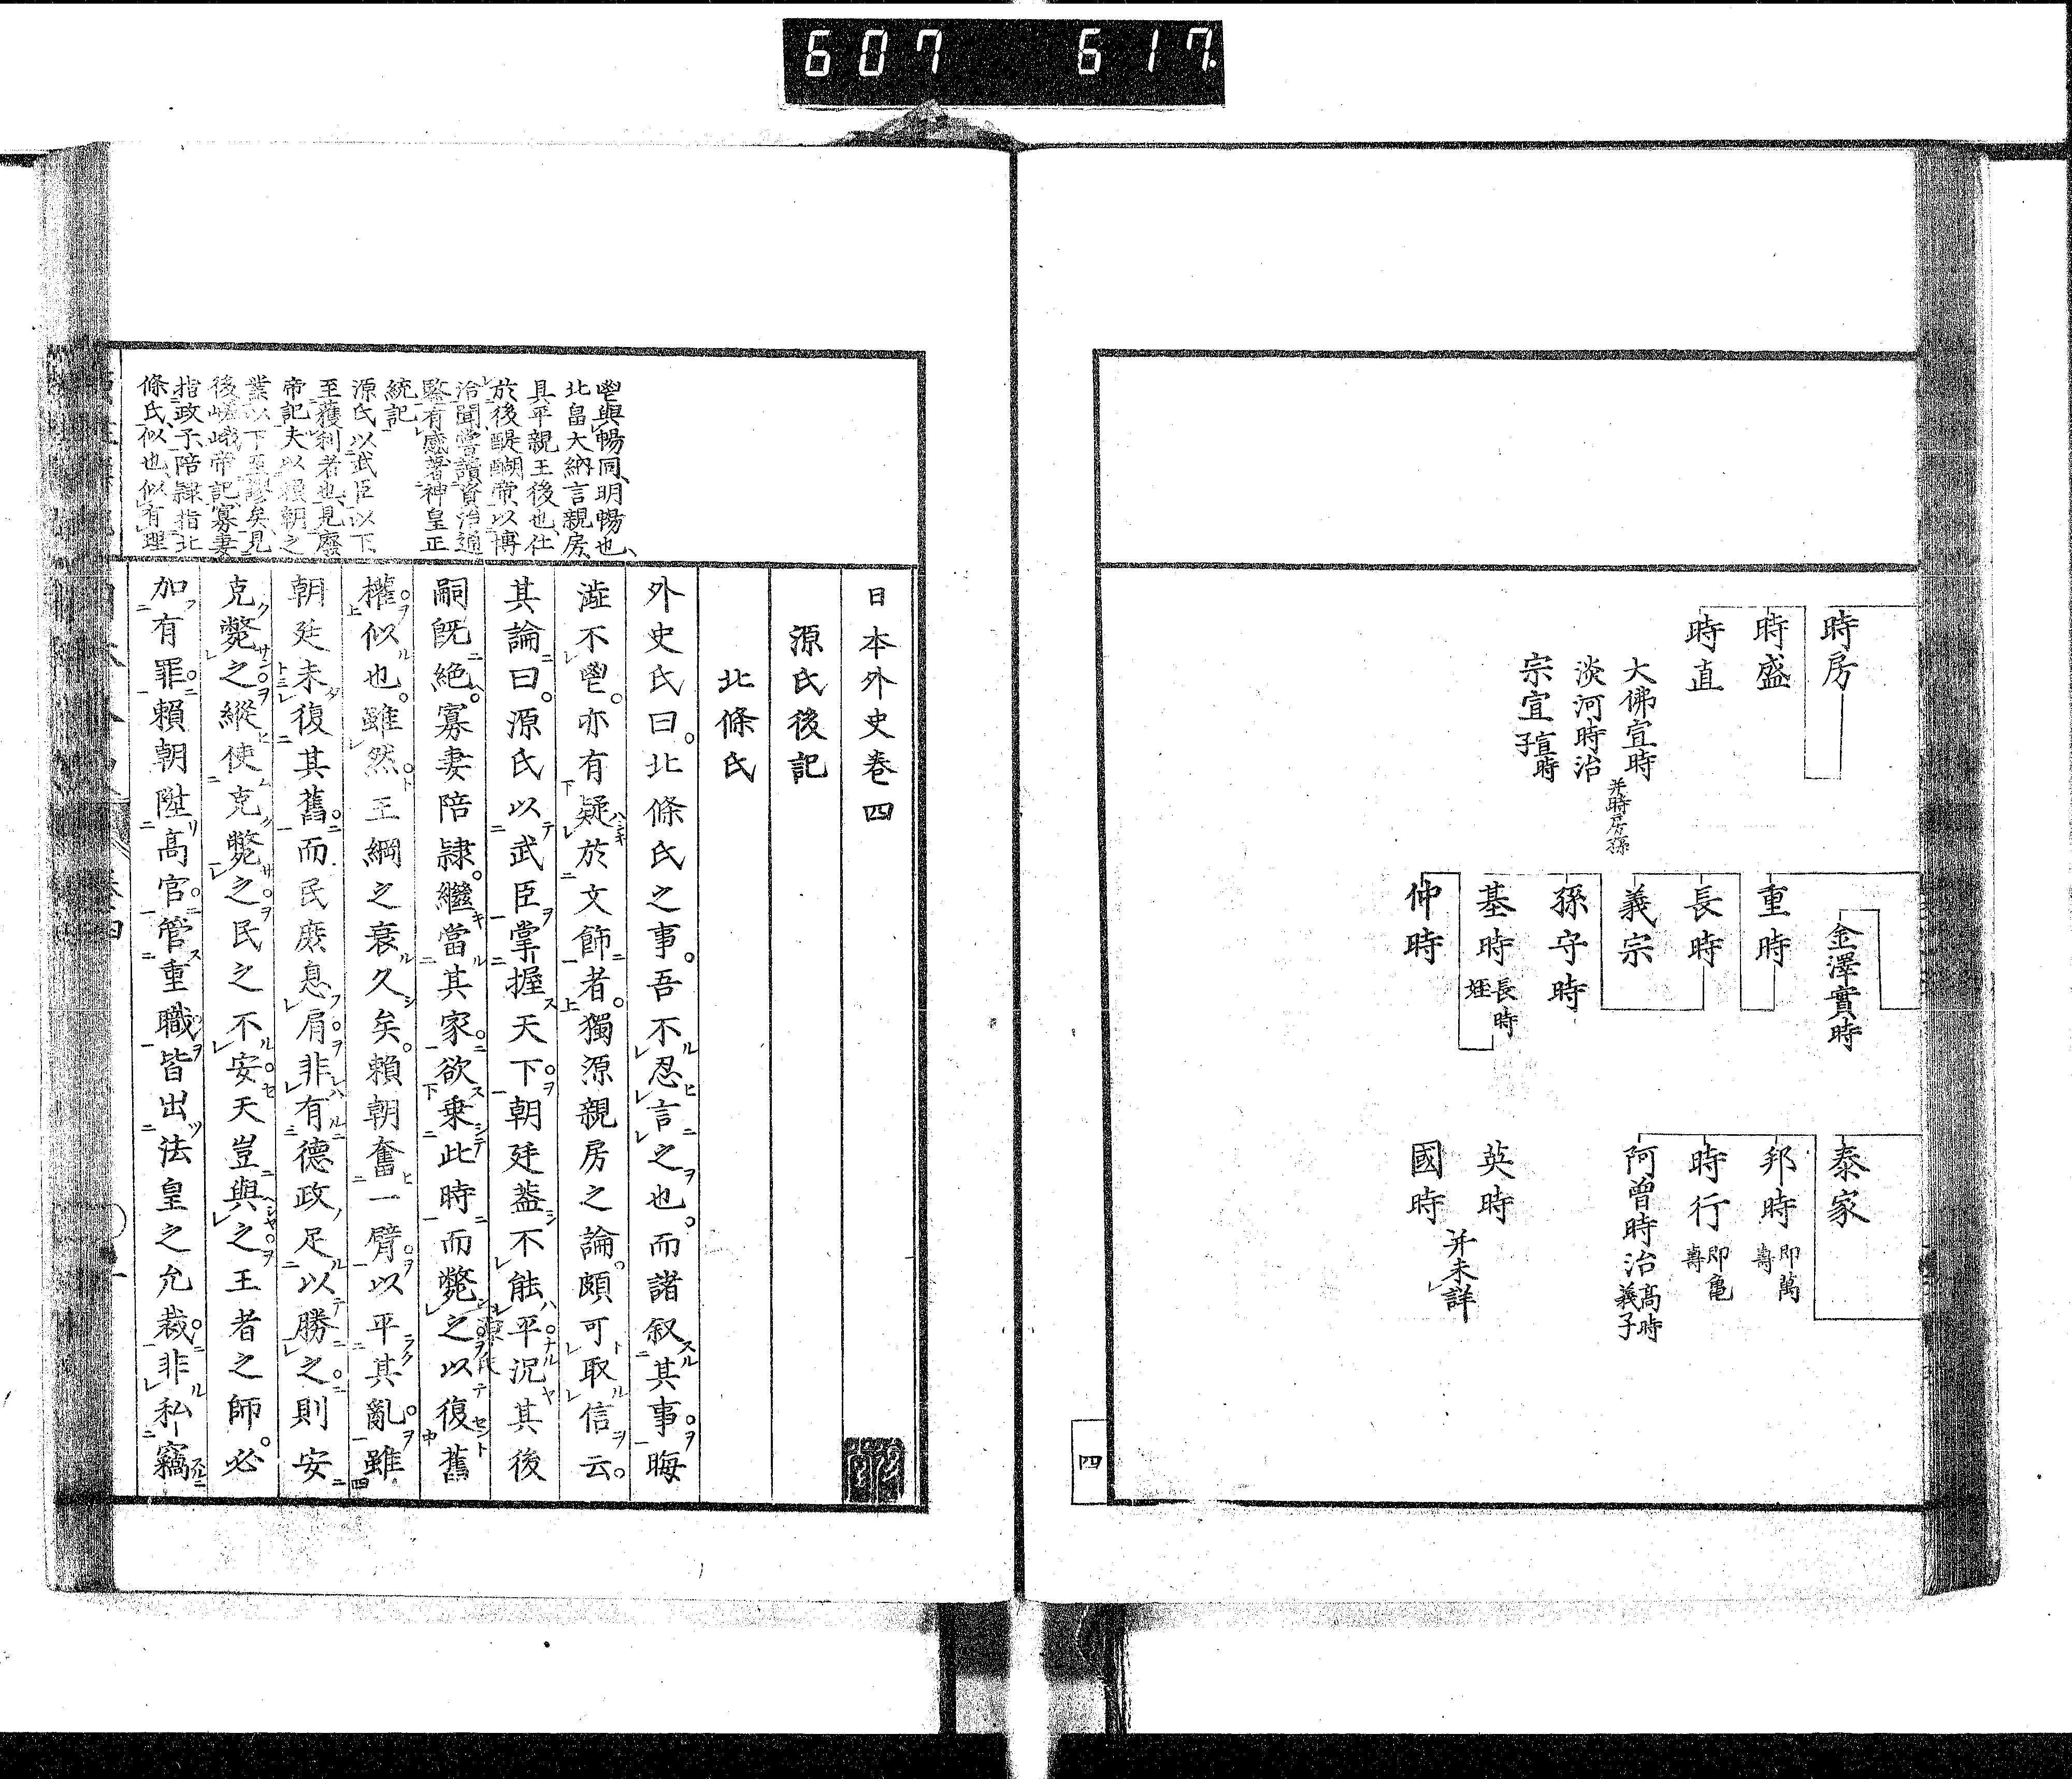 607 617.
時房
時盛
時直
大佛宣時
淡河時治
并時房孫
宗宣宣時子
金澤實時
重時
長時
義宗
孫守時
基時長時姪
仲時
泰家
邦時即萬壽
時行即亀壽
阿曾時治高時義子
英時
國時
并未詳
四
鬯與暢同、明暢也、
北畠大納言親房、
具平親王後也、仕
於後醍醐帝、以博
洽聞、嘗讀資治通
鑒有感著神皇正
統記
源氏以武臣以下
至獲利者也、見廢
帝記、夫以賴朝之
業以下至謬矣、見
後嵯峨帝記、寡妻
指政子、陪隷指北
條氏、似也、似有理
日本外史卷四
源氏後記
北條氏
外史氏曰。北條氏之事。吾不忍言之也。而諸叙其事。晦
澁不鬯。亦有疑於文飾者。獨源親房之論。頗可取信云。
其論曰。源氏以武臣掌握天下。朝廷蓋不能平。況其後
嗣既絶。寡妻陪隷。繼當其家。欲乘此時而斃之以復舊
權。似也。雖然。王綱之衰久矣。賴朝奮一臂。以平其亂。雖
朝廷未復其舊。而民庶息肩。非有德政足以勝之。則安
克斃之。縱使克斃之。民之不安。天豈與之。王者之師。必
加有罪。賴朝陞高官。管重職。皆出法皇之允裁。非私竊